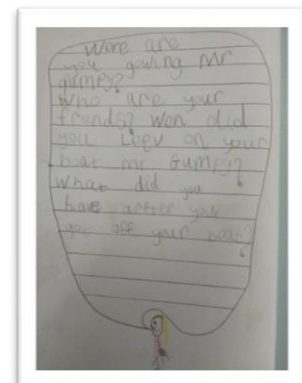 Were are
you gowing Mr
gumpy?
Who are your
frends? Wen did
you Leev on your
boat mr Gumpy?
What did you
have arfter you
got off your boat?